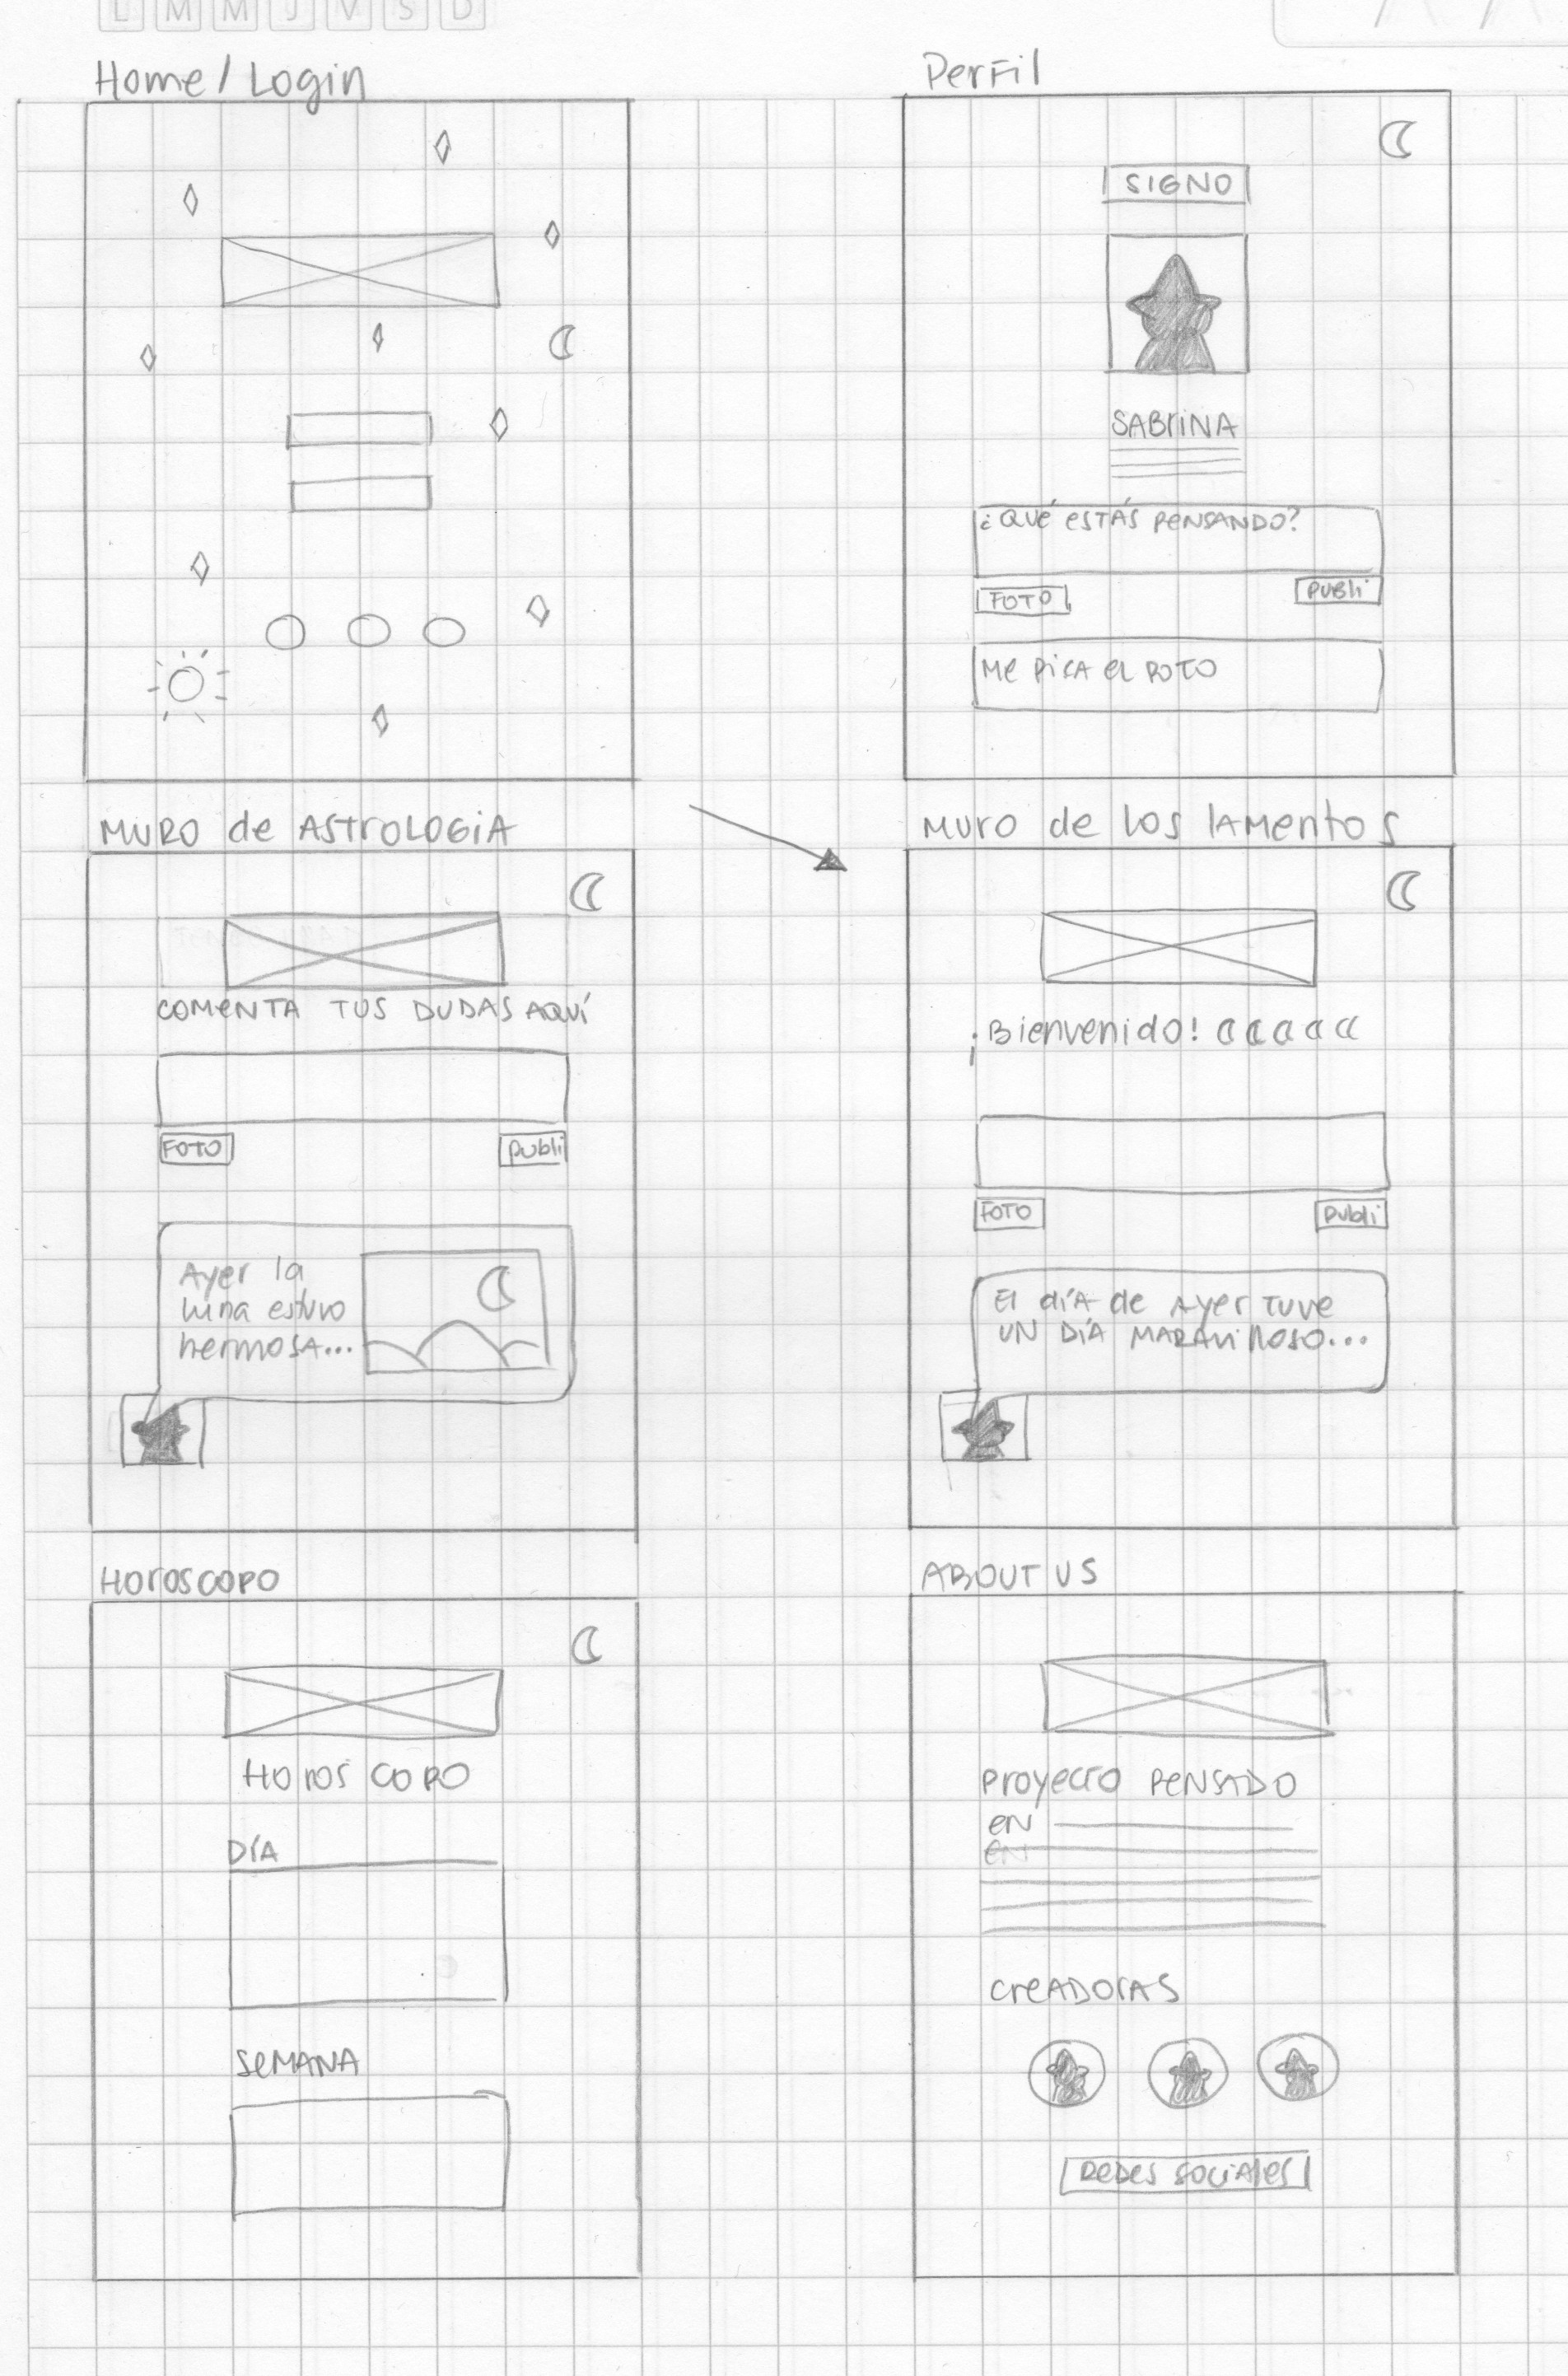 L M M J V S D
Home / Login
Perfil
SIGNO
SABRINA
¿QUÉ ESTÁS PENSANDO?
FOTO
PUBLI
ME PICA EL POTO
MURO de ASTROLOGIA
COMENTA TUS DUDAS AQUÍ
FOTO
publi
Ayer la
luna estuvo
hermosa...
MURO de LOS LAMENTOS
¡Bienvenido!
FOTO
publi
El día de ayer tuve
un día maravilloso...
HOROSCOPO
HOROSCOPO
DÍA
SEMANA
ABOUT US
PROYECTO PENSADO
EN
EN
CREADORAS
REDES SOCIALES